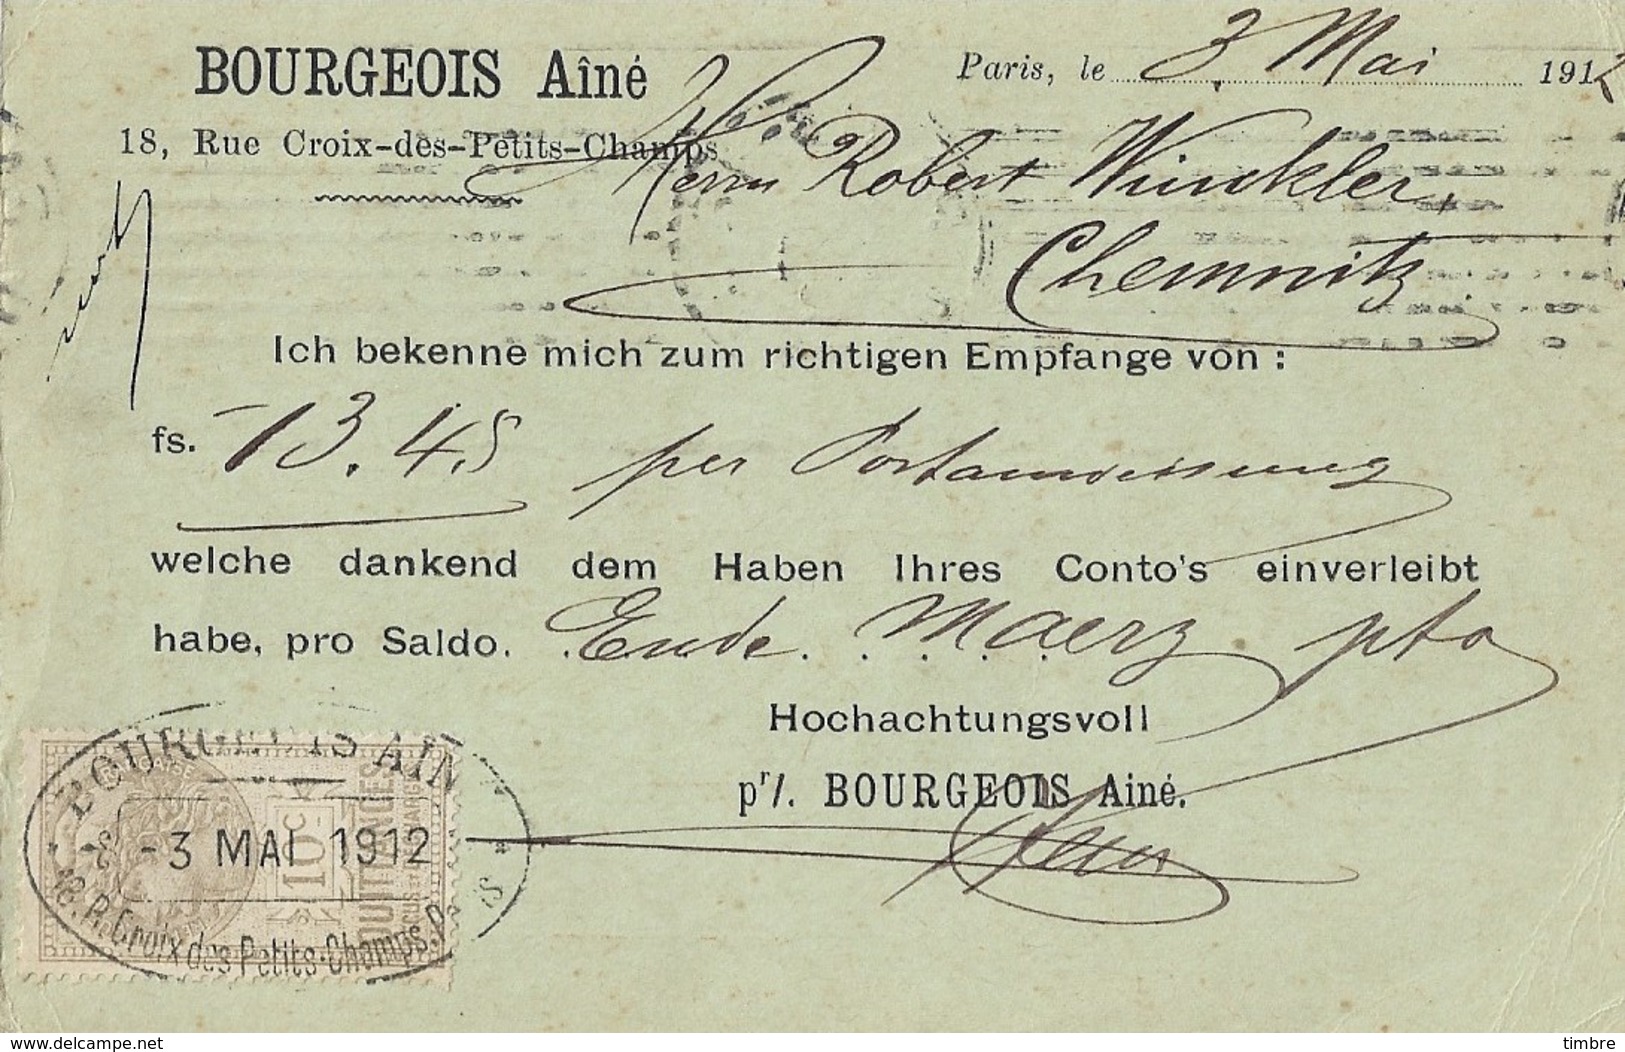 BOURGEOIS Aîné
Paris, le 3 Mai 1912
18, Rue Croix-des-Petits-Champs
Herrn Robert Winckler,
Chemnitz
Ich bekenne mich zum richtigen Empfange von :
fs. 13.45 per Postanweisung
welche dankend dem Haben Ihres Conto's einverleibt
habe, pro Saldo. Ende Maerz pto
Hochachtungsvoll
pr/. BOURGEOIS Ainé.
BOURGEOIS AINÉ
-3 MAI 1912
18. R. Croix des Petits-Champs. PARIS
10c
QUITTANCES
REÇUS ET DÉCHARGES
delcampe.net
timbre